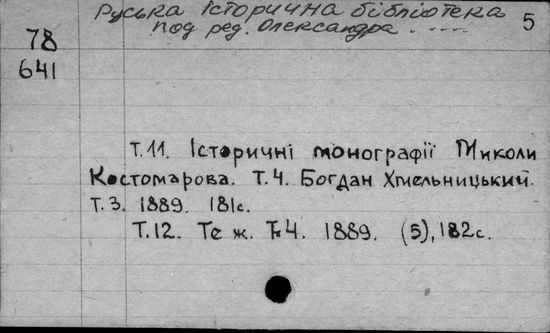 Руська історична бібліотека 5
под ред. Олександра .....
78
641
Т.11. Історичні монографії Миколи
Костомарова. Т.4. Богдан Хмельницький.
Т.3. 1889. 181с.
Т.12. Те ж. Т.4. 1889. (5), 182с.